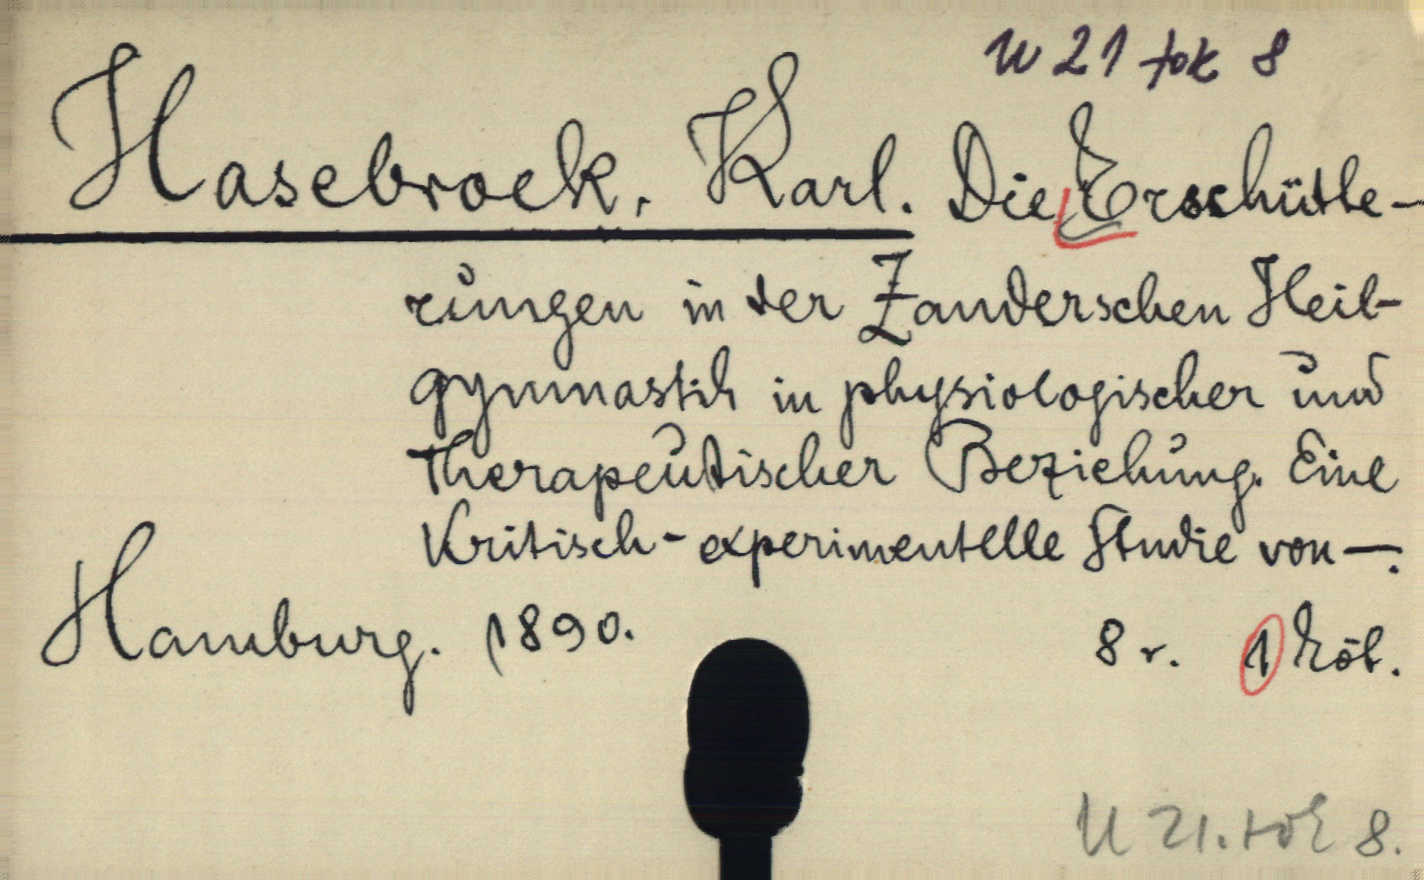 U 21 tok 8
Hasebroek, Karl. Die Erschütte-
rungen in der Zanderschen Heil-
gymnastik in physiologischer und
therapeutischer Beziehung. Eine
Kritisch-experimentelle Studie von —.
Hamburg. 1890. 8 r. 1 köt.
U 21. tok 8.